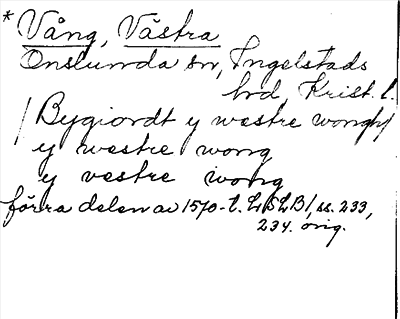 * Vång, Västra
Onslunda sn, Ingelstads
hrd, Krist. l.
/ Bygiordt y westre wong /
y westre wong
y vestre wong
förra delen av 1570-t. LSLB1, ss. 233,
234. orig.